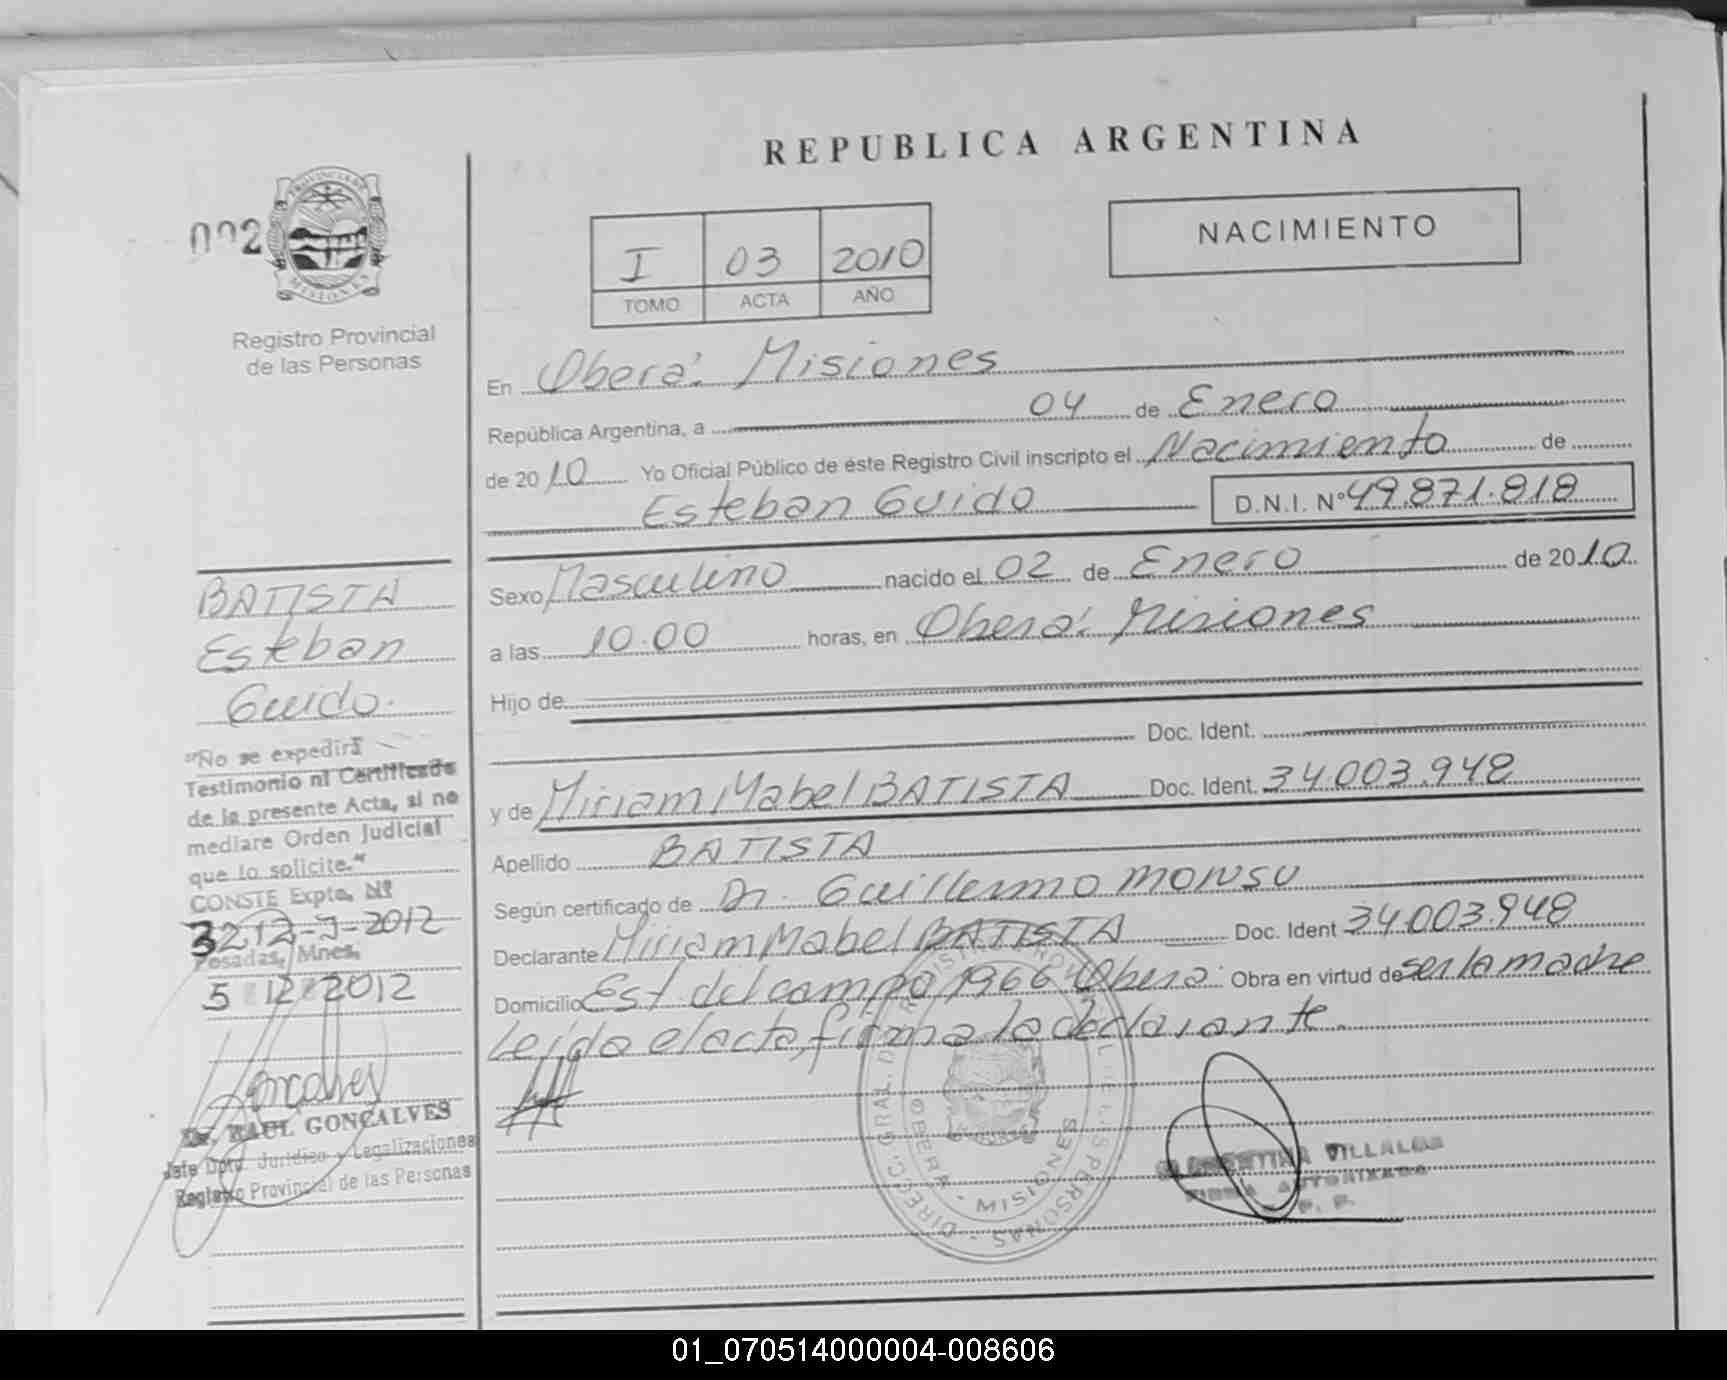 REPUBLICA ARGENTINA
NACIMIENTO
002
PROVINCIA DE
MISIONES
Registro Provincial
de las Personas
I 03 2010
TOMO ACTA AÑO
En Oberá: Misiones
República Argentina, a 04 de Enero
de 2010 Yo Oficial Público de éste Registro Civil inscripto el Nacimiento de
Esteban Guido D.N.I. Nº 49.871.818
Sexo Masculino nacido el 02 de Enero de 2010
a las 10.00 horas, en Oberá: Misiones
Hijo de
Doc. Ident.
y de Miriam Mabel BATISTA Doc. Ident. 34.003.948
Apellido BATISTA
Según certificado de Dr. Guillermo MONSU
Declarante Miriam Mabel BATISTA Doc. Ident 34.003.948
Domicilio Est del campo 1966 Oberá: Obra en virtud de ser la madre
Leída el acta, firma la declarante.
BATISTA
Esteban
Guido.
"No se expedirá
Testimonio ni Certificado
de la presente Acta, si no
mediare Orden Judicial
que lo solicite."
CONSTE Expte. Nº
3212-J-2012
Posadas, Mnes.
5 12 2012
Dr. RAUL GONÇALVES
Jefe Dpto. Jurídico y Legalizaciones
Registro Provincial de las Personas
OBERA - MISIONES
VILLALBA
FIRMA AUTORIZADA
01_070514000004-008606